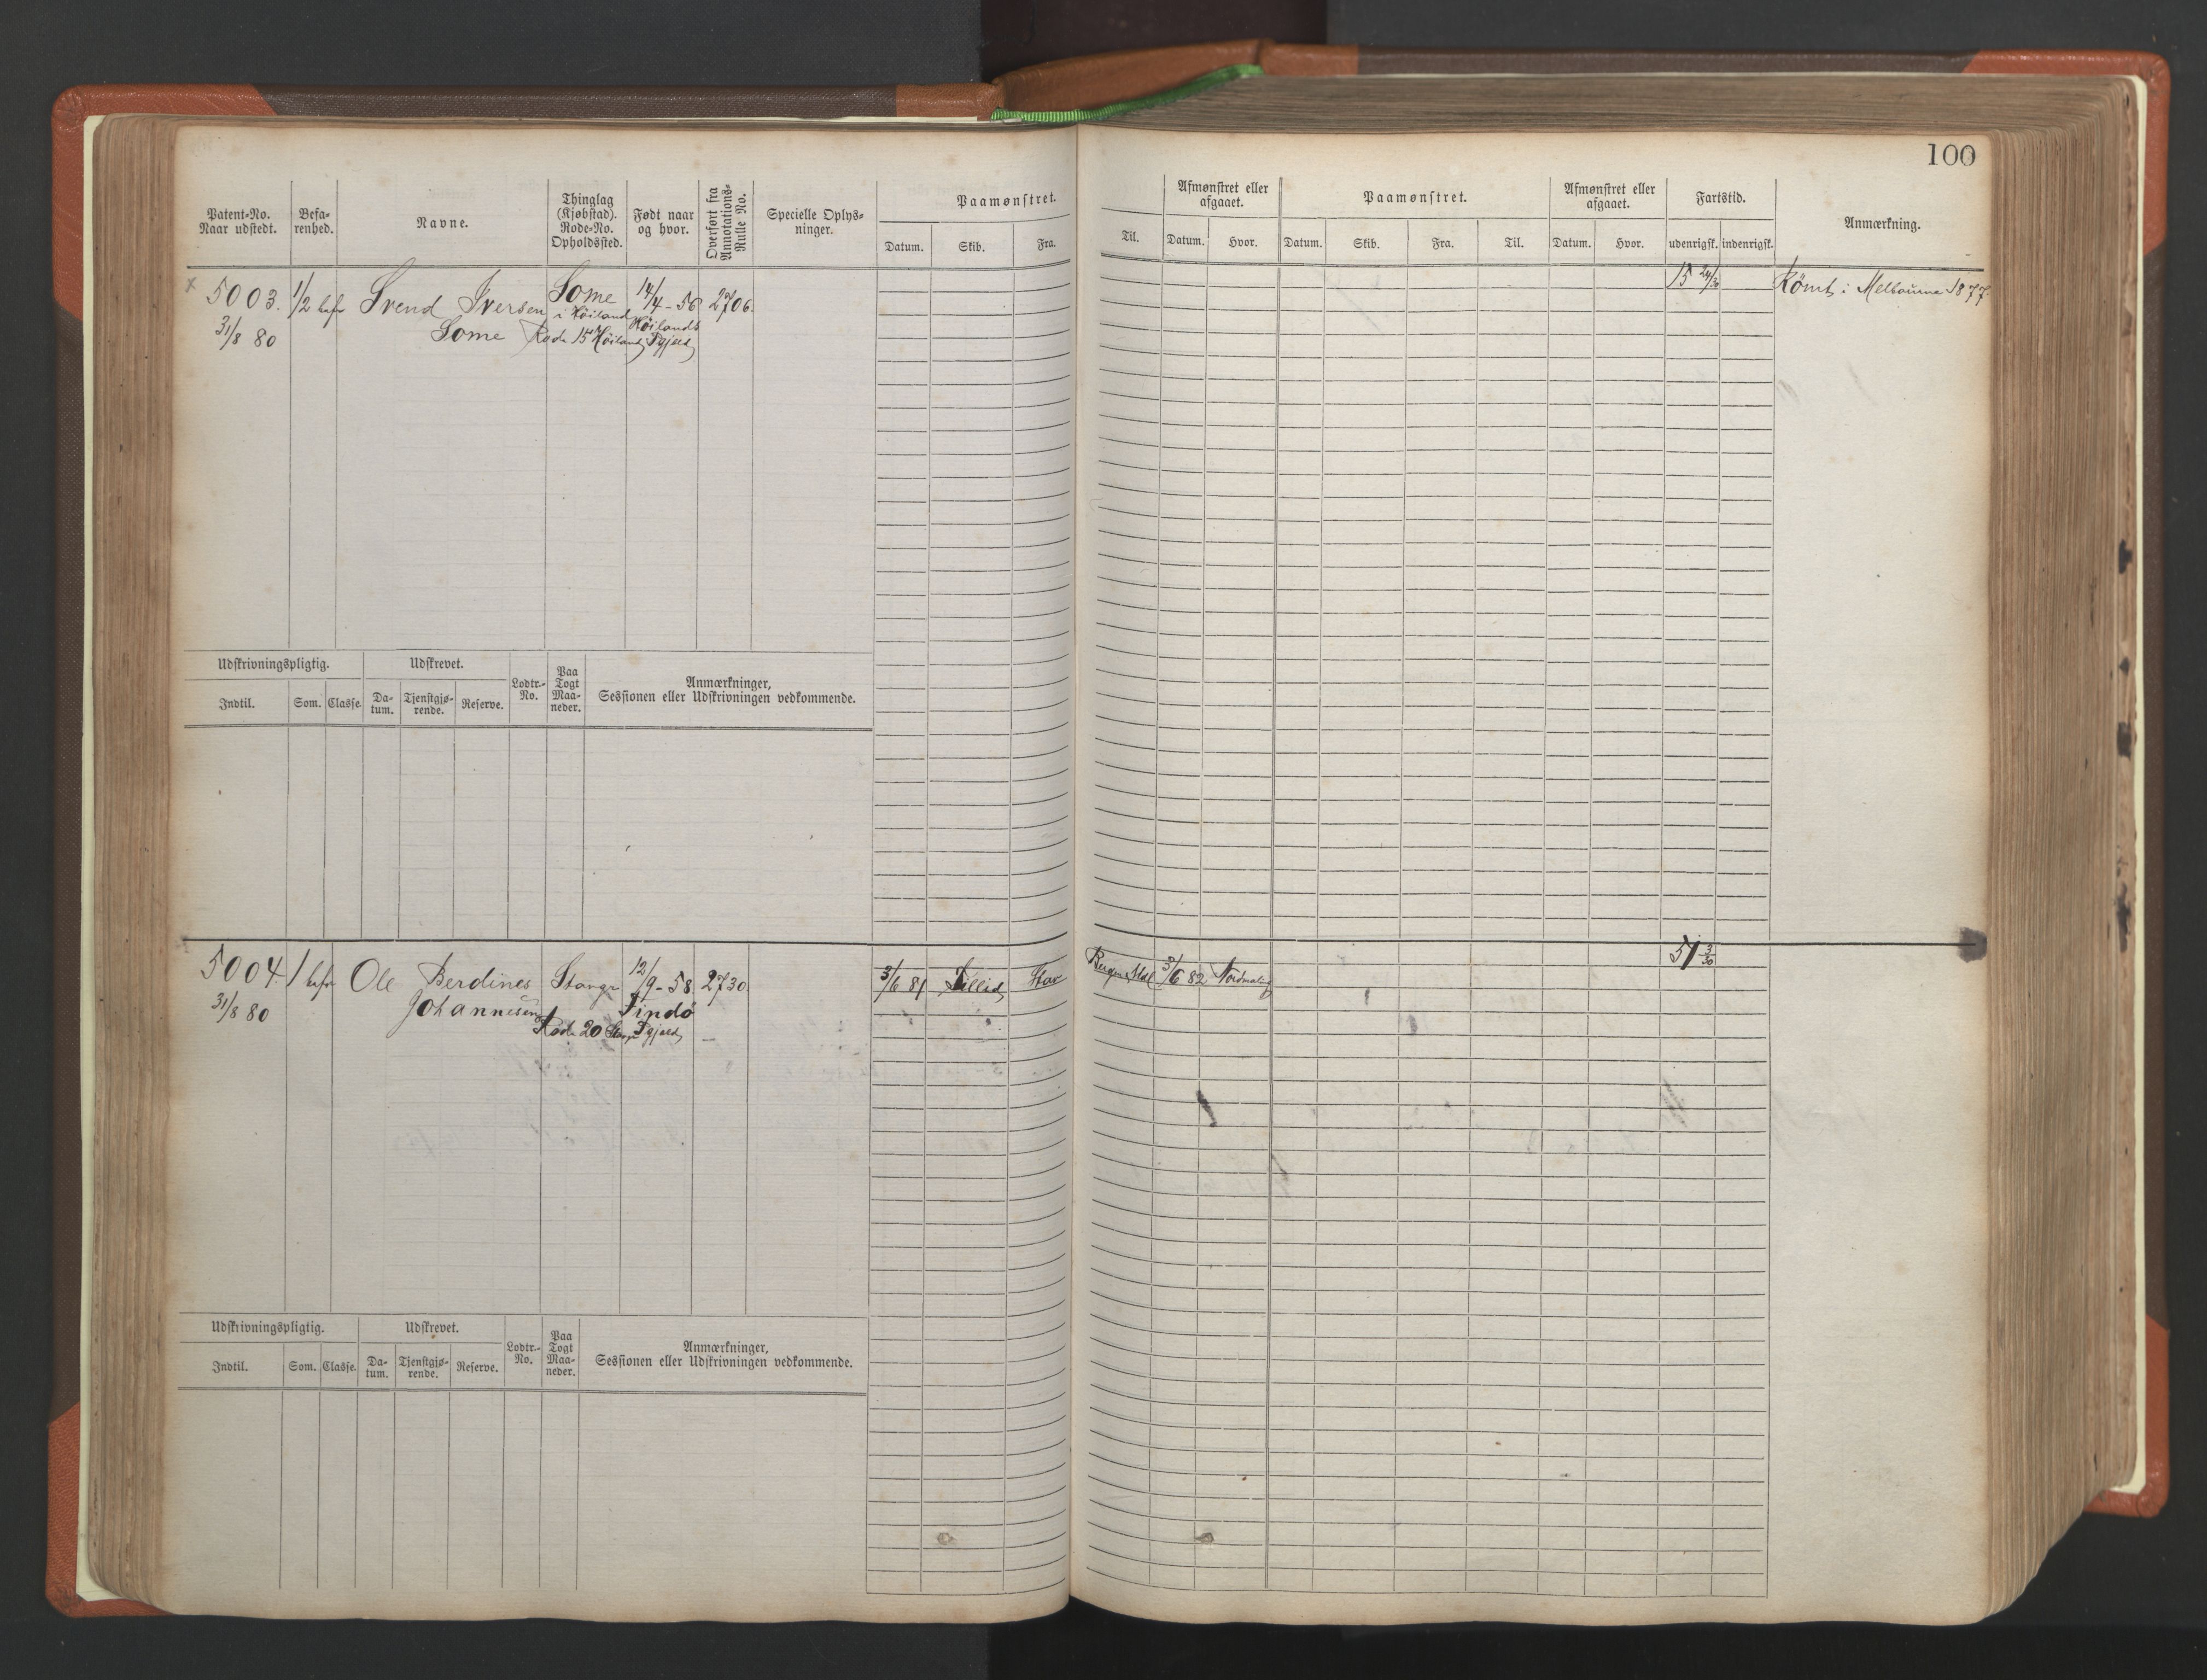 100
Patent-No. Naar udstedt.
Befa-renhed.
Navne.
Thinglag (Kjøbstad). Rode-No. Opholdssted.
Født naar og hvor.
Overført fra Annotations-Rulle No.
Specielle Oplys-ninger.
Paamønstret.
Datum. Skib. Fra.
Til.
Afmønstret eller afgaaet.
Datum. Hvor.
Paamønstret.
Datum. Skib. Fra. Til.
Afmønstret eller afgaaet.
Datum. Hvor.
Fartstid.
udenrigsk. indenrigsk.
Anmærkning.
5003. 1/2 bef Svend Iversen Some 14/4-56 2706. 15 24/30 Römt i Melbourne 1877
i Höiland Höilands
31/8 80 Some Rode 15 Höiland Pgjeld
Udskrivningspligtig. Udskrevet. Lodtr.-No. Paa Togt Maa-neder. Anmærkninger, Sessionen eller Udskrivningen vedkommende.
Indtil. Som. Classe. Da-tum. Tjenstgjø-rende. Reserve.
5004. 1 bef Ole Berdines Stangr 12/9-58 2730 3/6 81 Stav 3/6 82 51 3/30
31/8 80 Johannesen Findö
Rode 20 Pgjeld
Udskrivningspligtig. Udskrevet. Lodtr.-No. Paa Togt Maa-neder. Anmærkninger, Sessionen eller Udskrivningen vedkommende.
Indtil. Som. Classe. Da-tum. Tjenstgjø-rende. Reserve.